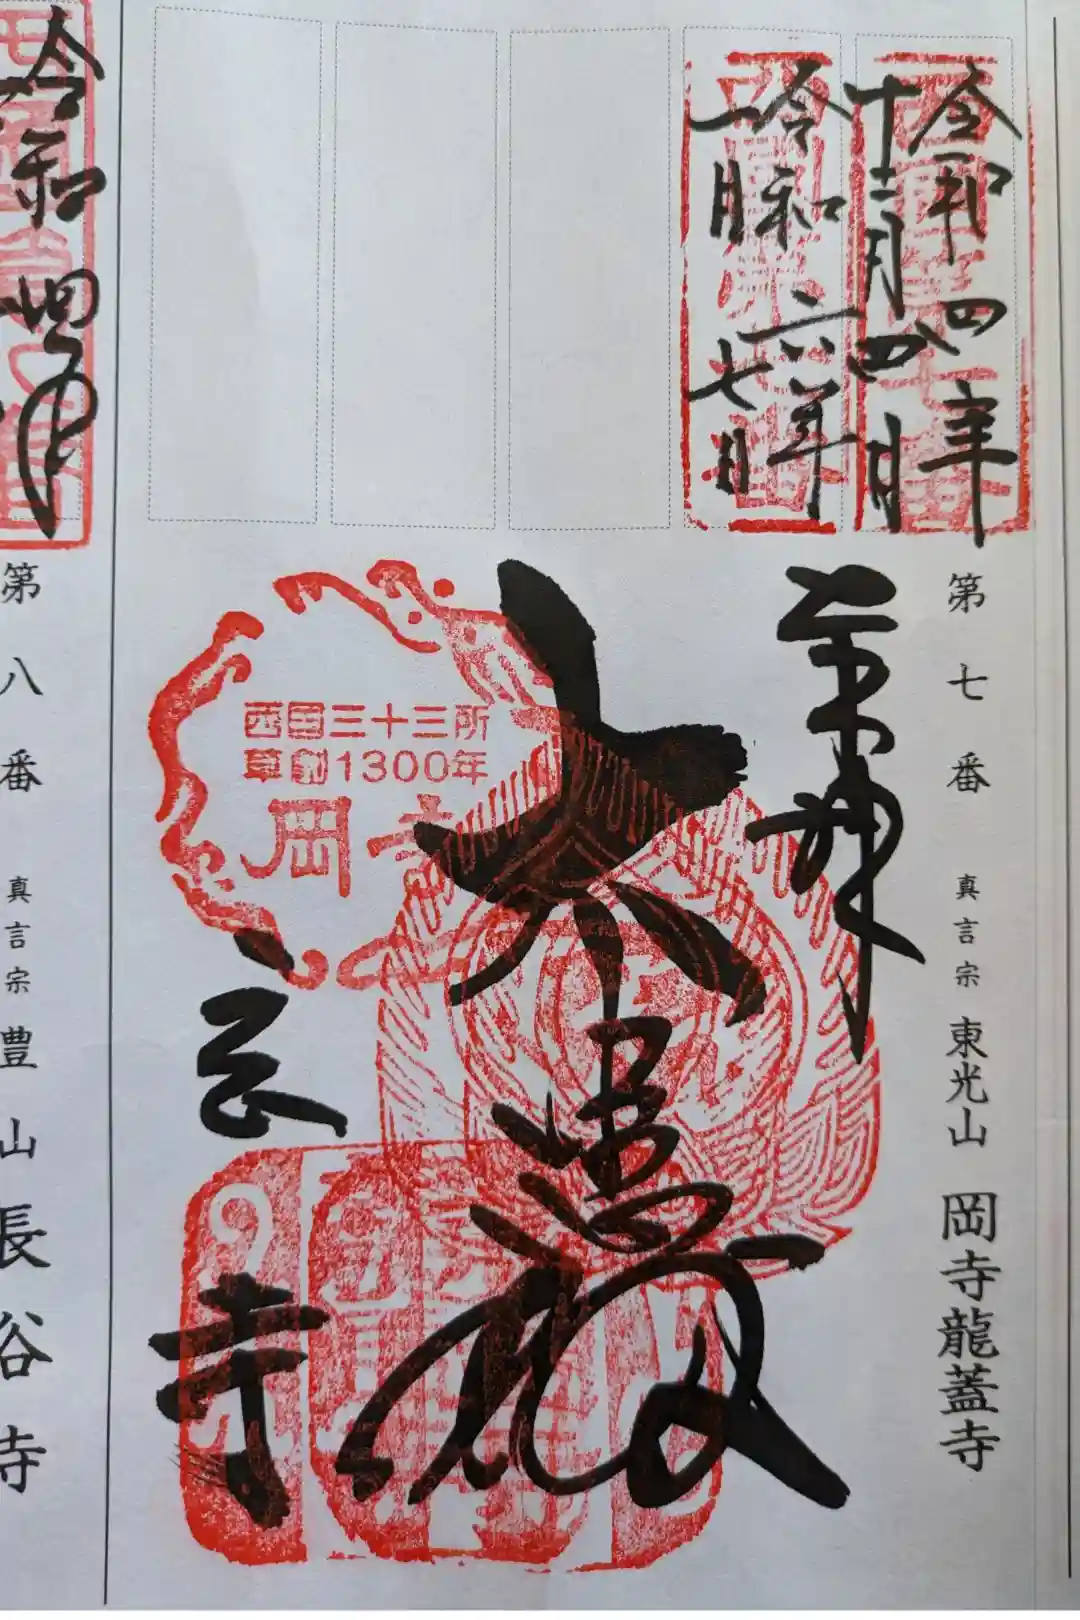 令和四年
十二月四日
令和六年
一月七日
第七番 真言宗 東光山 岡寺龍蓋寺
奉拝
大悲殿
西国三十三所
草創1300年
岡寺
寺
令和四年
第八番 真言宗 豊山 長谷寺